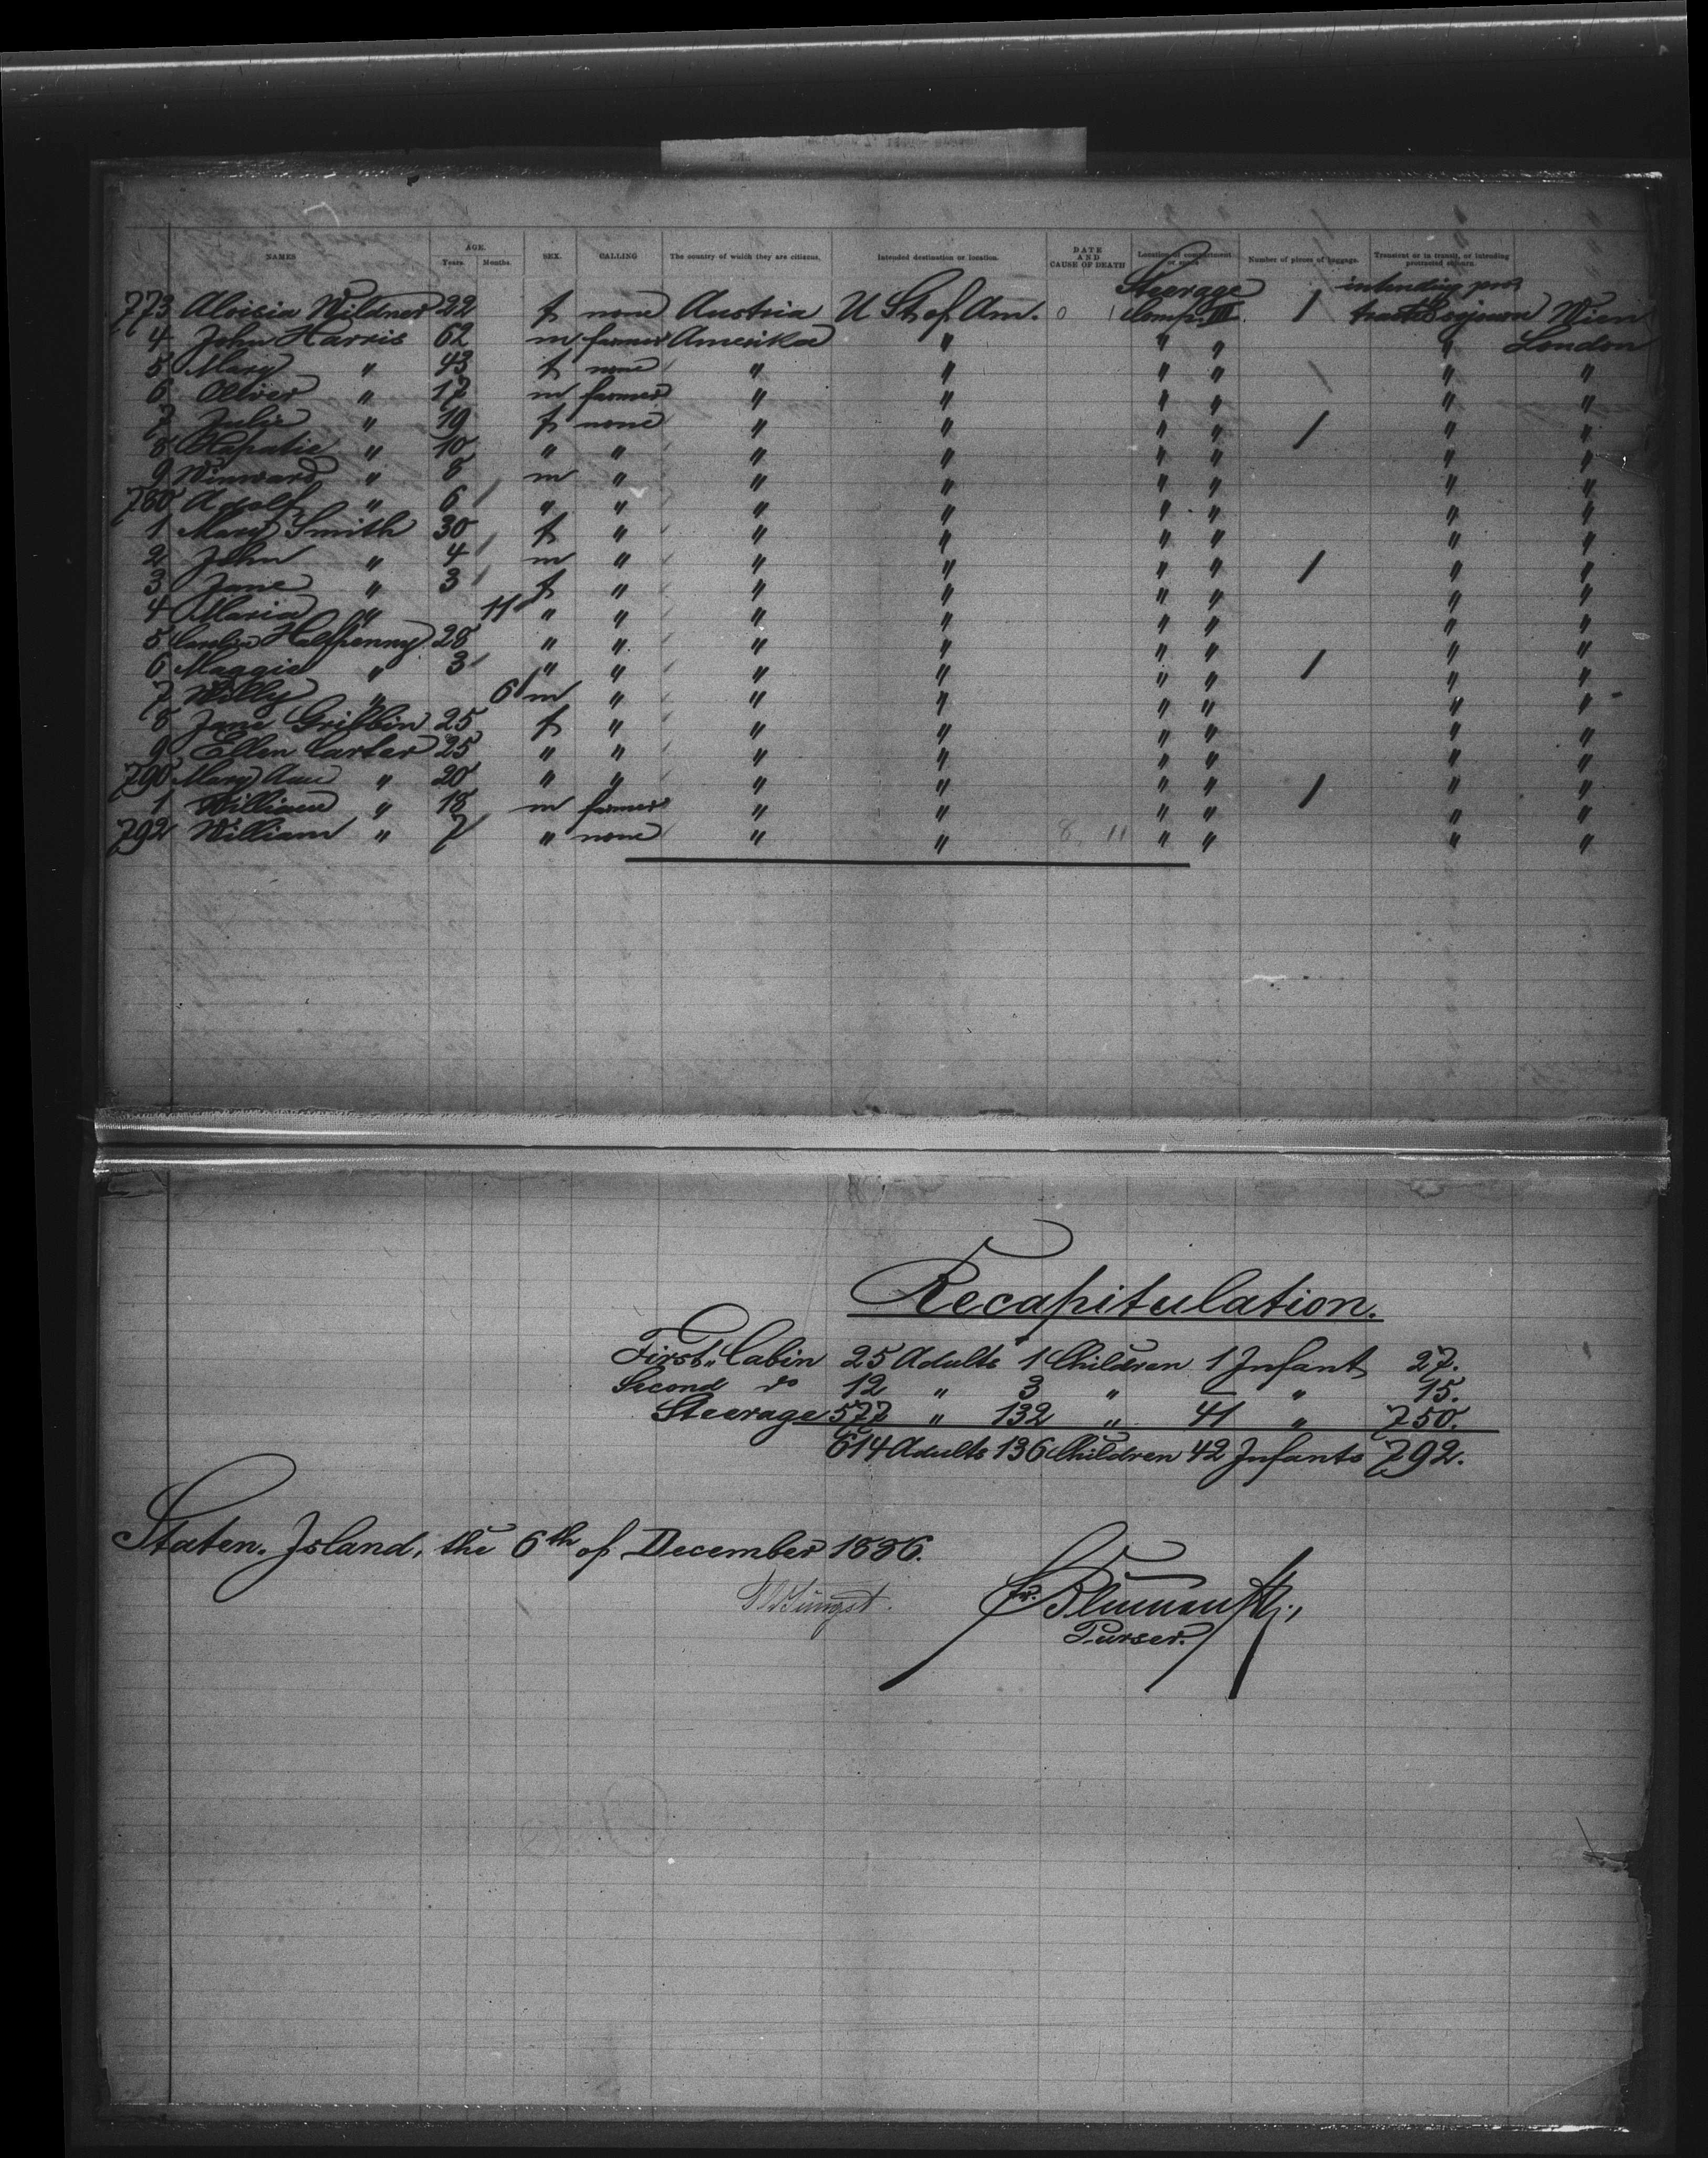 NAMES AGE. Years. Months. SEX. CALLING The country of which they are citizens. Intended destination or location. DATE AND CAUSE OF DEATH Location of compartment or space. Number of pieces of baggage. Transient or in transit, or intending protracted sojourn.
773 Aloisia Wildner 22 f none Austria U St of Am. 0 1 Steerage Comp. III. 1 intending protract Sojourn Wien
4 John Harris 62 m farmer Amerika " " " " London
5 Mary " 43 f none " " " " / " "
6 Oliver " 17 m farmer " " " " " "
7 Julie " 19 f none " " " " / " "
8 " 10 " " " " " " " "
9 Winward " 8 m " " " " " " "
780 Adolf " 6 " " " " " " " "
1 Mary Smith 30 f " " " " " " "
2 John " 4 m " " " " " / " "
3 Jane " 3 f " " " " " " "
4 Maria " 11 " " " " " " " "
5 Halfpenny 28 " " " " " " " "
6 Maggie " 3 " " " " " " / " "
7 Willy " 6 m " " " " " " "
8 Jane Gribbin 25 f " " " " " " "
9 Ellen Carter 25 " " " " " " " "
790 Mary Ann " 20 " " " " " " / " "
1 William " 18 m farmer " " " " " "
792 William " 7 " none " " 8, 11 " " " "
Recapitulation.
First " Cabin 25 Adults 1 Children 1 Infant 27.
Second do 12 " 3 " — " 15.
Steerage 577 " 132 " 41 " 750.
614 Adults 136 Children 42 Infants 792.
Staten. Island, the 6th of December 1886.
Purser.